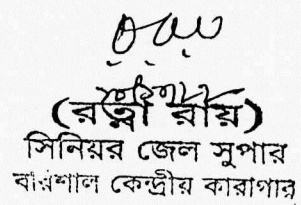 (রত্না রায়)
সিনিয়র জেল সুপার
বরিশাল কেন্দ্রীয় কারাগার